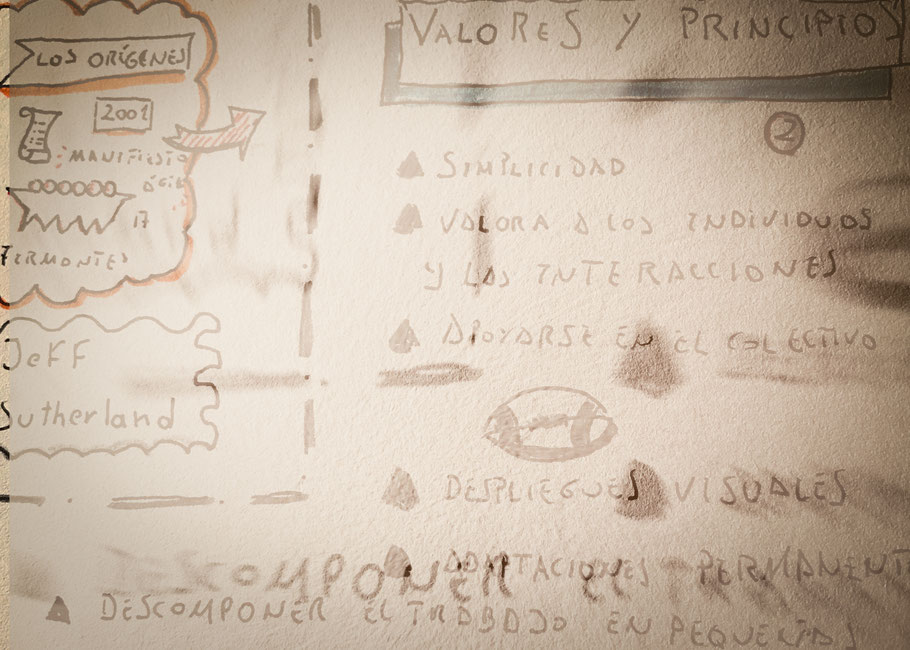 LOS ORÍGENES
2001
MANIFIESTO
ÁGIL
17
FIRMONTES
Jeff
Sutherland
VALORES Y PRINCIPIOS
2
SIMPLICIDAD
VALORA A LOS INDIVIDUOS
Y LAS INTERACCIONES
APOYARSE EN EL COLECTIVO
DESPLIEGUES VISUALES
ADAPTACIONES PERMANENT
DESCOMPONER EL TRABAJO EN PEQUEÑAS